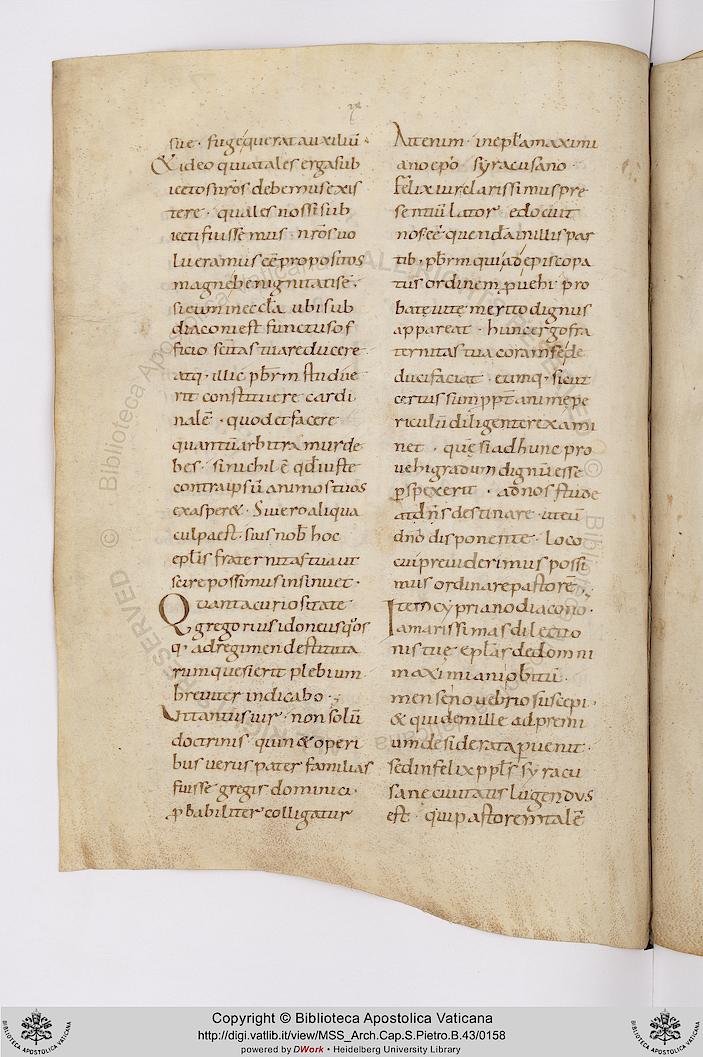 sue · fugęquerat auxiliū ·
Et ideo qui a tales erga sub
iectos nr̄os debemus exis
tere · quales nos si sub
iecti fuissemus · nr̄os uo
lueramus eē propositos
magnę benignitatis ē ·
si eum in eccl̄a ubi sub
diaconi est functus of
ficio sc̄itas tua reducere
atq · illic p̄br̄m studue
rit constituere cardi
nalē · quod et facere
quantū arbitramur de
bes · si nichil ē qđ iuste
contra ipsū animos tuos
exasperet · Si uero aliqua
culpa est · siue nob̄ hoc
epl̄is fraternitas tua ut
scire possimus insinuet ·
Quanta curiositate
gregorius idoneus q̄os
q · ad regimen destituta
rum quesierit plebium
breuiter indicabo ·
Vt tantus uir · non solū
doctrinis · quin et operi
bus uerus pater familias
fuisse gregis dominici ·
p̄babiliter colligatur
Ait enim · in epl̄a maximi
ano ep̄o syracusano ·
Felix uir clarissimus pre
sentiū lator · edocuit
nos eē quendā in illis par
tib · p̄br̄m qui ad episcopa
tus ordinem p̄uehi pro
bate uite merito dignus
appareat · hunc ergo fra
ternitas tua coram se de
duci faciat · eumq · sicut
certus sum pp̄t animę pe
riculū diligenter exami
net · quē si ad hunc pro
uehi gradum dignū esse
p̄spexerit · ad nos stude
at dn̄s destinare · ut eū
dn̄o disponente · loco
cui preuiderimus possi
mus ordinare pastorē ·
Item cypriano diacono ·
amarissimas dilectio
nis tuę epl̄as de domni
maximiani obitū
mense nouebrio suscepi ·
& quidem ille ad premi
um desiderata puenit ·
sed infelix ppl̄s syracu
sane ciuitatis lugendus
est · qui pastorem talē